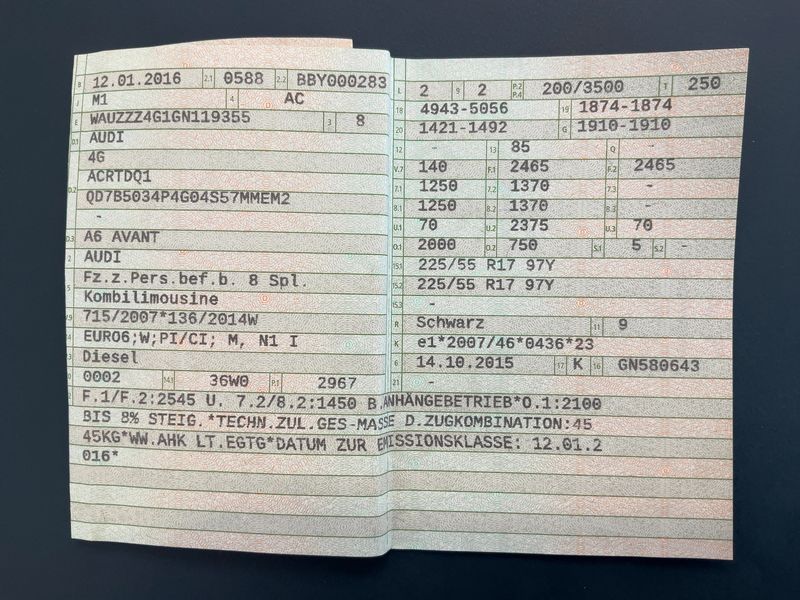 B 12.01.2016 2.1 0588 2.2 BBY000283
J M1 4 AC
E WAUZZZ4G1GN119355 3 8
D.1 AUDI
4G
D.2 ACRTDQ1
QD7B5034P4G04S57MMEM2
-
D.3 A6 AVANT
2 AUDI
5 Fz.z.Pers.bef.b. 8 Spl.
Kombilimousine
V.9 715/2007*136/2014W
14 EURO6;W;PI/CI; M, N1 I
P.3 Diesel
10 0002 14.1 36W0 P.1 2967
L 2 9 2 P.2 P.4 200/3500 T 250
18 4943-5056 19 1874-1874
20 1421-1492 G 1910-1910
12 - 13 85 Q -
V.7 140 F.1 2465 F.2 2465
7.1 1250 7.2 1370 7.3 -
8.1 1250 8.2 1370 8.3 -
U.1 70 U.2 2375 U.3 70
O.1 2000 O.2 750 S.1 5 S.2 -
15.1 225/55 R17 97Y
15.2 225/55 R17 97Y
15.3 -
R Schwarz 11 9
K e1*2007/46*0436*23
6 14.10.2015 17 K 16 GN580643
21 -
F.1/F.2:2545 U. 7.2/8.2:1450 B.ANHÄNGEBETRIEB*O.1:2100
BIS 8% STEIG.*TECHN.ZUL.GES-MASSE D.ZUGKOMBINATION:45
45KG*WW.AHK LT.EGTG*DATUM ZUR EMISSIONSKLASSE: 12.01.2
016*